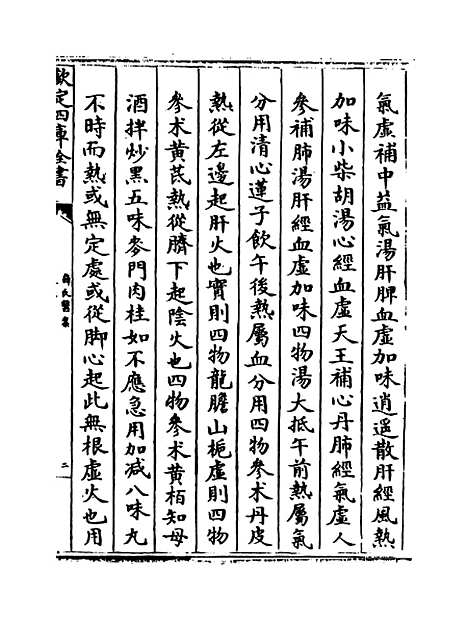 氣虛補中益氣湯肝脾血虛加味逍遥散肝經風熱
加味小柴胡湯心經血虛天王補心丹肺經氣虛人
參補肺湯肝經血虛加味四物湯大抵午前熱屬氣
分用清心蓮子飲午後熱屬血分用四物參术丹皮
熱從左邊起肝火也實則四物龍膽山梔虛則四物
參术黄芪熱從臍下起陰火也四物參术黄栢知母
酒拌炒黑五味麥門肉桂如不應急用加减八味丸
不時而熱或無定處或從脚心起此無根虛火也用
欽定四庫全書
薛氏醫案
二